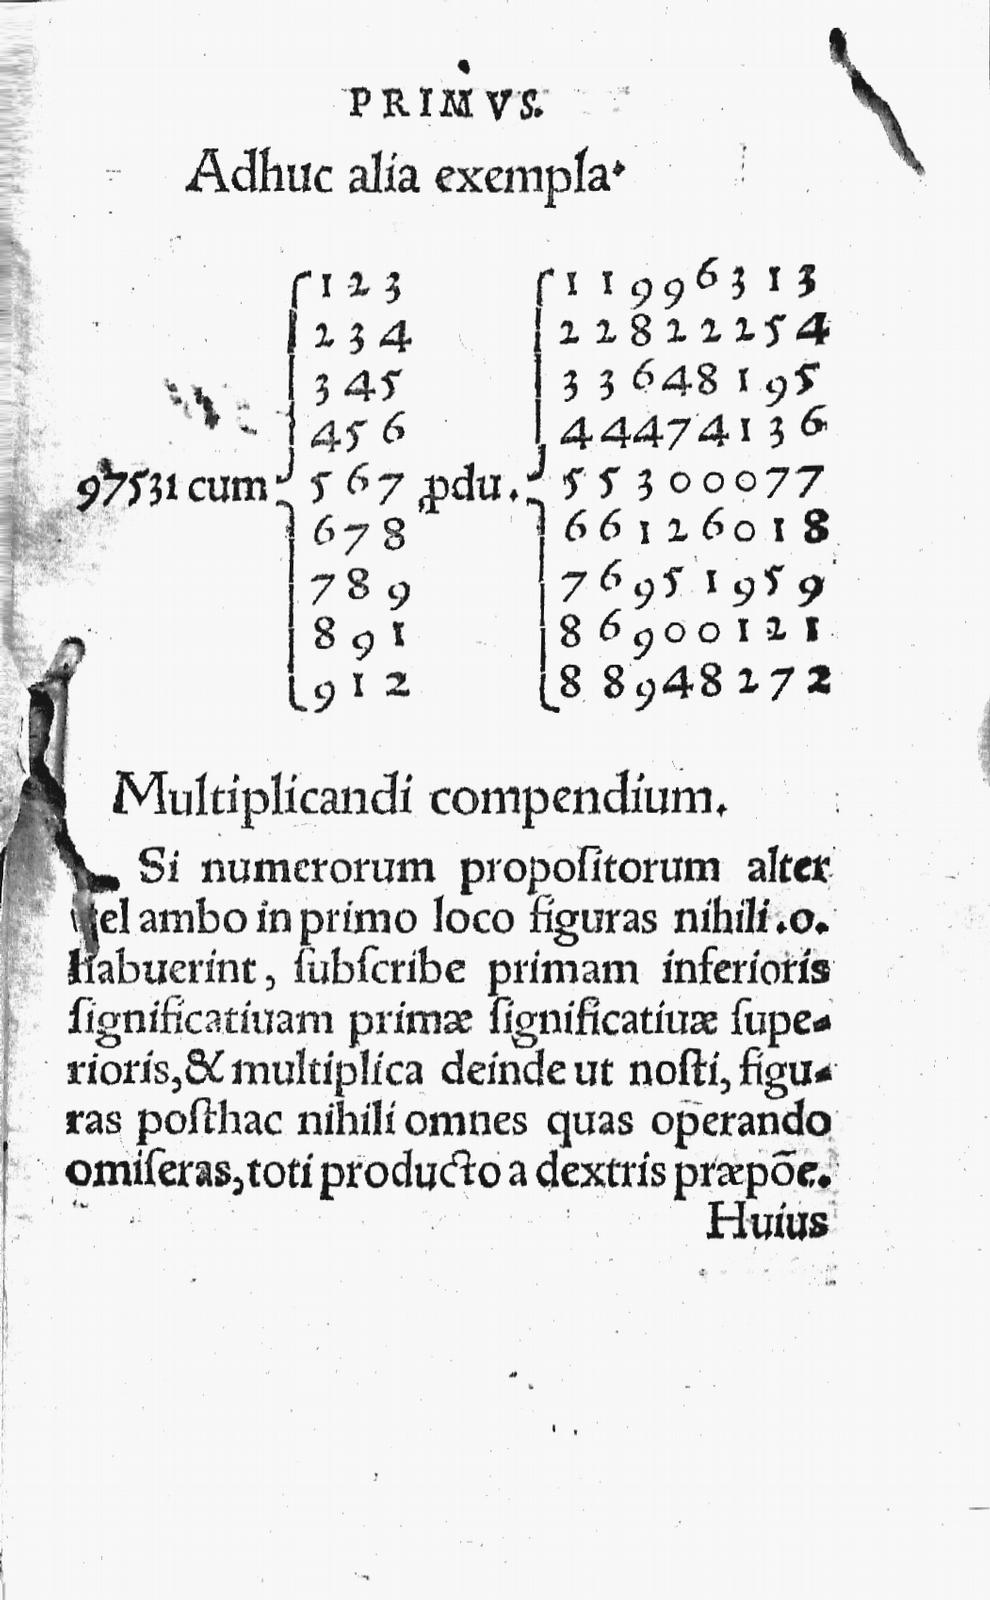 PRIMVS.
Adhuc alia exempla.
1 2 3 1 1 9 9 6 3 1 3
2 3 4 2 2 8 2 2 2 5 4
3 4 5 3 3 6 4 8 1 9 5
4 5 6 4 4 4 7 4 1 3 6
97531 cum 5 6 7 ꝓdu. 5 5 3 0 0 0 7 7
6 7 8 6 6 1 2 6 0 1 8
7 8 9 7 6 9 5 1 9 5 9
8 9 1 8 6 9 0 0 1 2 1
9 1 2 8 8 9 4 8 2 7 2
Multiplicandi compendium.
Si numerorum propoſitorum alter
uel ambo in primo loco figuras nihili .0.
habuerint, ſubſcribe primam inferioris
ſignificatiuam primæ ſignificatiuæ ſupe-
rioris, & multiplica deinde ut noſti, figu-
ras poſthac nihili omnes quas operando
omiſeras, toti producto a dextris præpõe.
Huius